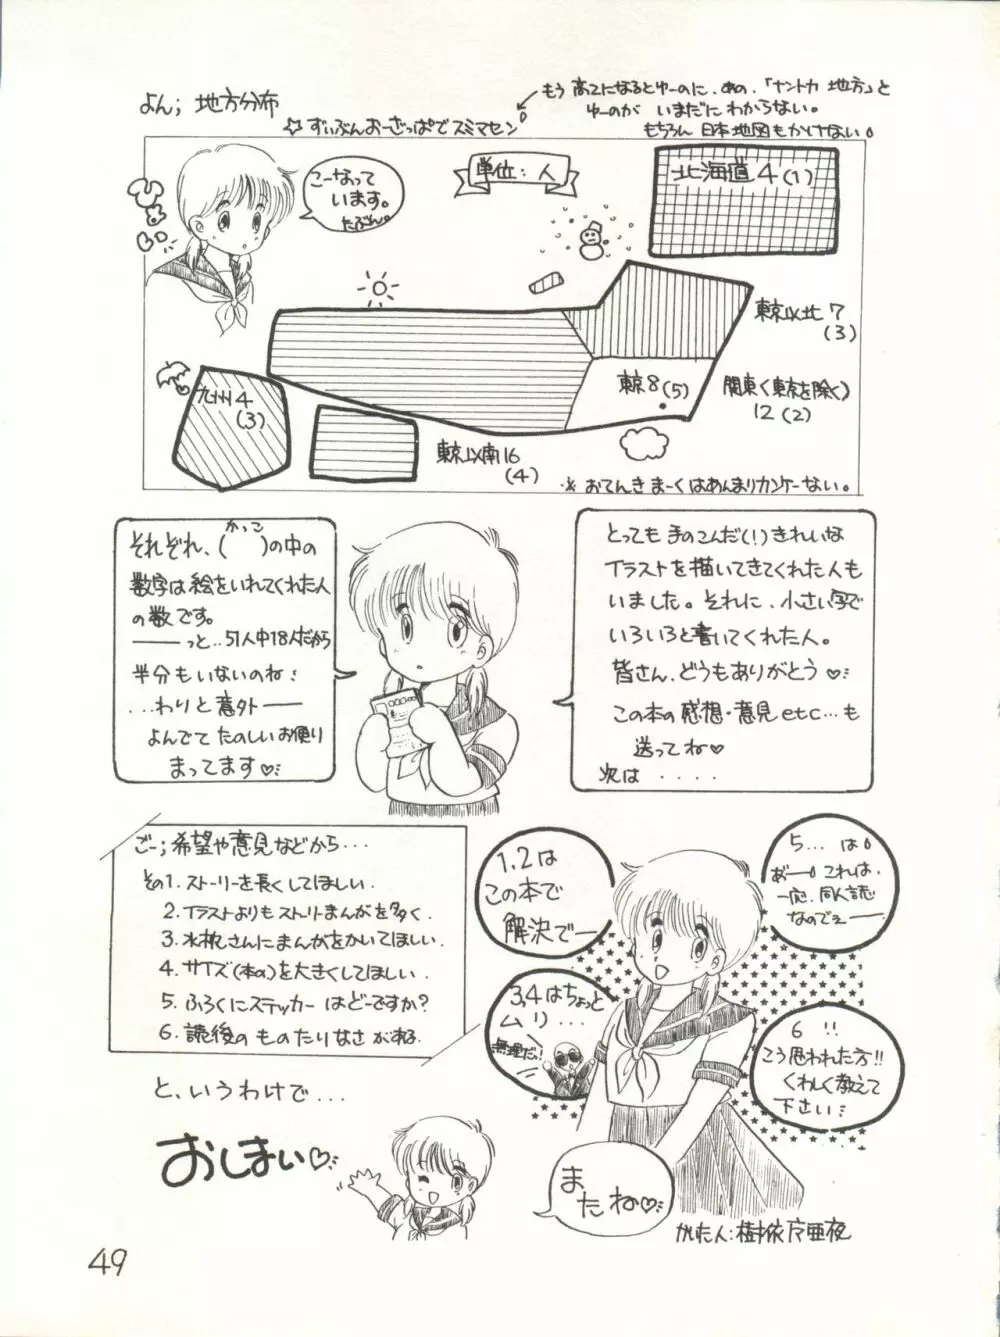 よん; 地方分布
☆ ずいぶんおーざっぱでスミマセン
もう 高二になるとゆーのに、あの、「ナントカ 地方」と
ゆーのが いまだにわからない。
もちろん 日本地図もかけない。
こーなって
います。
たぶん。
単位:人
北海道4(1)
東京以北7
(3)
東京8(5)
関東(東京を除く)
12(2)
九州4
(3)
東京以南16
(4)
※ おてんきまーくはあんまりカンケーない。
かっこ
それぞれ、( )の中の
数字は絵をいれてくれた人
の数です。
——っと…51人中18人だから
半分もいないのね;
…わりと意外——
よんでて たのしいお便り
まってます♡
とっても 手のこんだ(!)きれいな
イラストを描いてきてくれた人も
いました。それに、小さい字で
いろいろと書いてくれた人。
皆さん、どうもありがとう♡
この本の 感想・意見etc…も
送ってね♡
次は ‥‥
ごー; 希望や意見などから…
その1. ストーリーを長くしてほしい.
2. イラストよりもストーリーまんがを多く.
3. さんにまんがをかいてほしい.
4. サイズ(本の)を大きくしてほしい.
5. ふろくにステッカーはどーですか?
6. 読後のものたりなさがある.
1.2は
この本で
解決でー
3,4はちょっと
ムリ…
無理だ!
5… は。
あー。これは、
一応、同人誌
なのでぇ——
6 !!
こう思われた方!!
くわしく教えて
下さい;
と、いうわけで…
おしまい♡
また
ね♡
かいた人:樹依亜夜
49